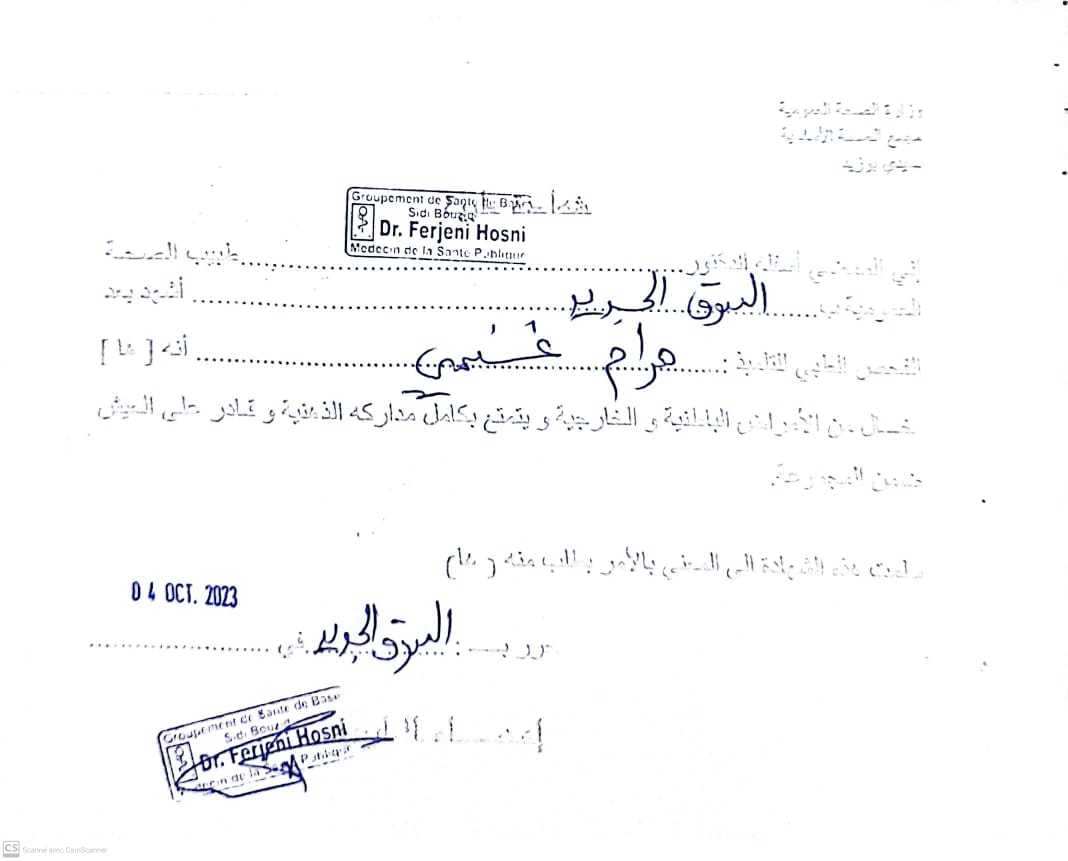 وزارة الصحة العمومية
مجمع الصحة الأساسية
سيدي بوزيد
شهادة طبية
Groupement de Santé de Base
Sidi Bouzid
Dr. Ferjeni Hosni
Medecin de la Santé Publique
إني الممضي أسفله الدكتور ........ طبيب الصحة
العمومية ب........ السوق الجديد ........ أشهد بعد
الفحص الطبي للتلميذ : ........ مرام غنيمي ........ أنه ( ها )
خال من الأمراض الباطنية و الخارجية و يتمتع بكامل مداركه الذهنية و قادر على العيش
ضمن المجموعة.
سلمت هذه الشهادة الى المعني بالأمر بطلب منه ( ها )
04 OCT. 2023
حرر بـ : السوق الجديد في ........
إمضاء
Groupement de Santé de Base
Sidi Bouzid
Dr. Ferjeni Hosni
Medecin de la Santé Publique
CS Scanné avec CamScanner